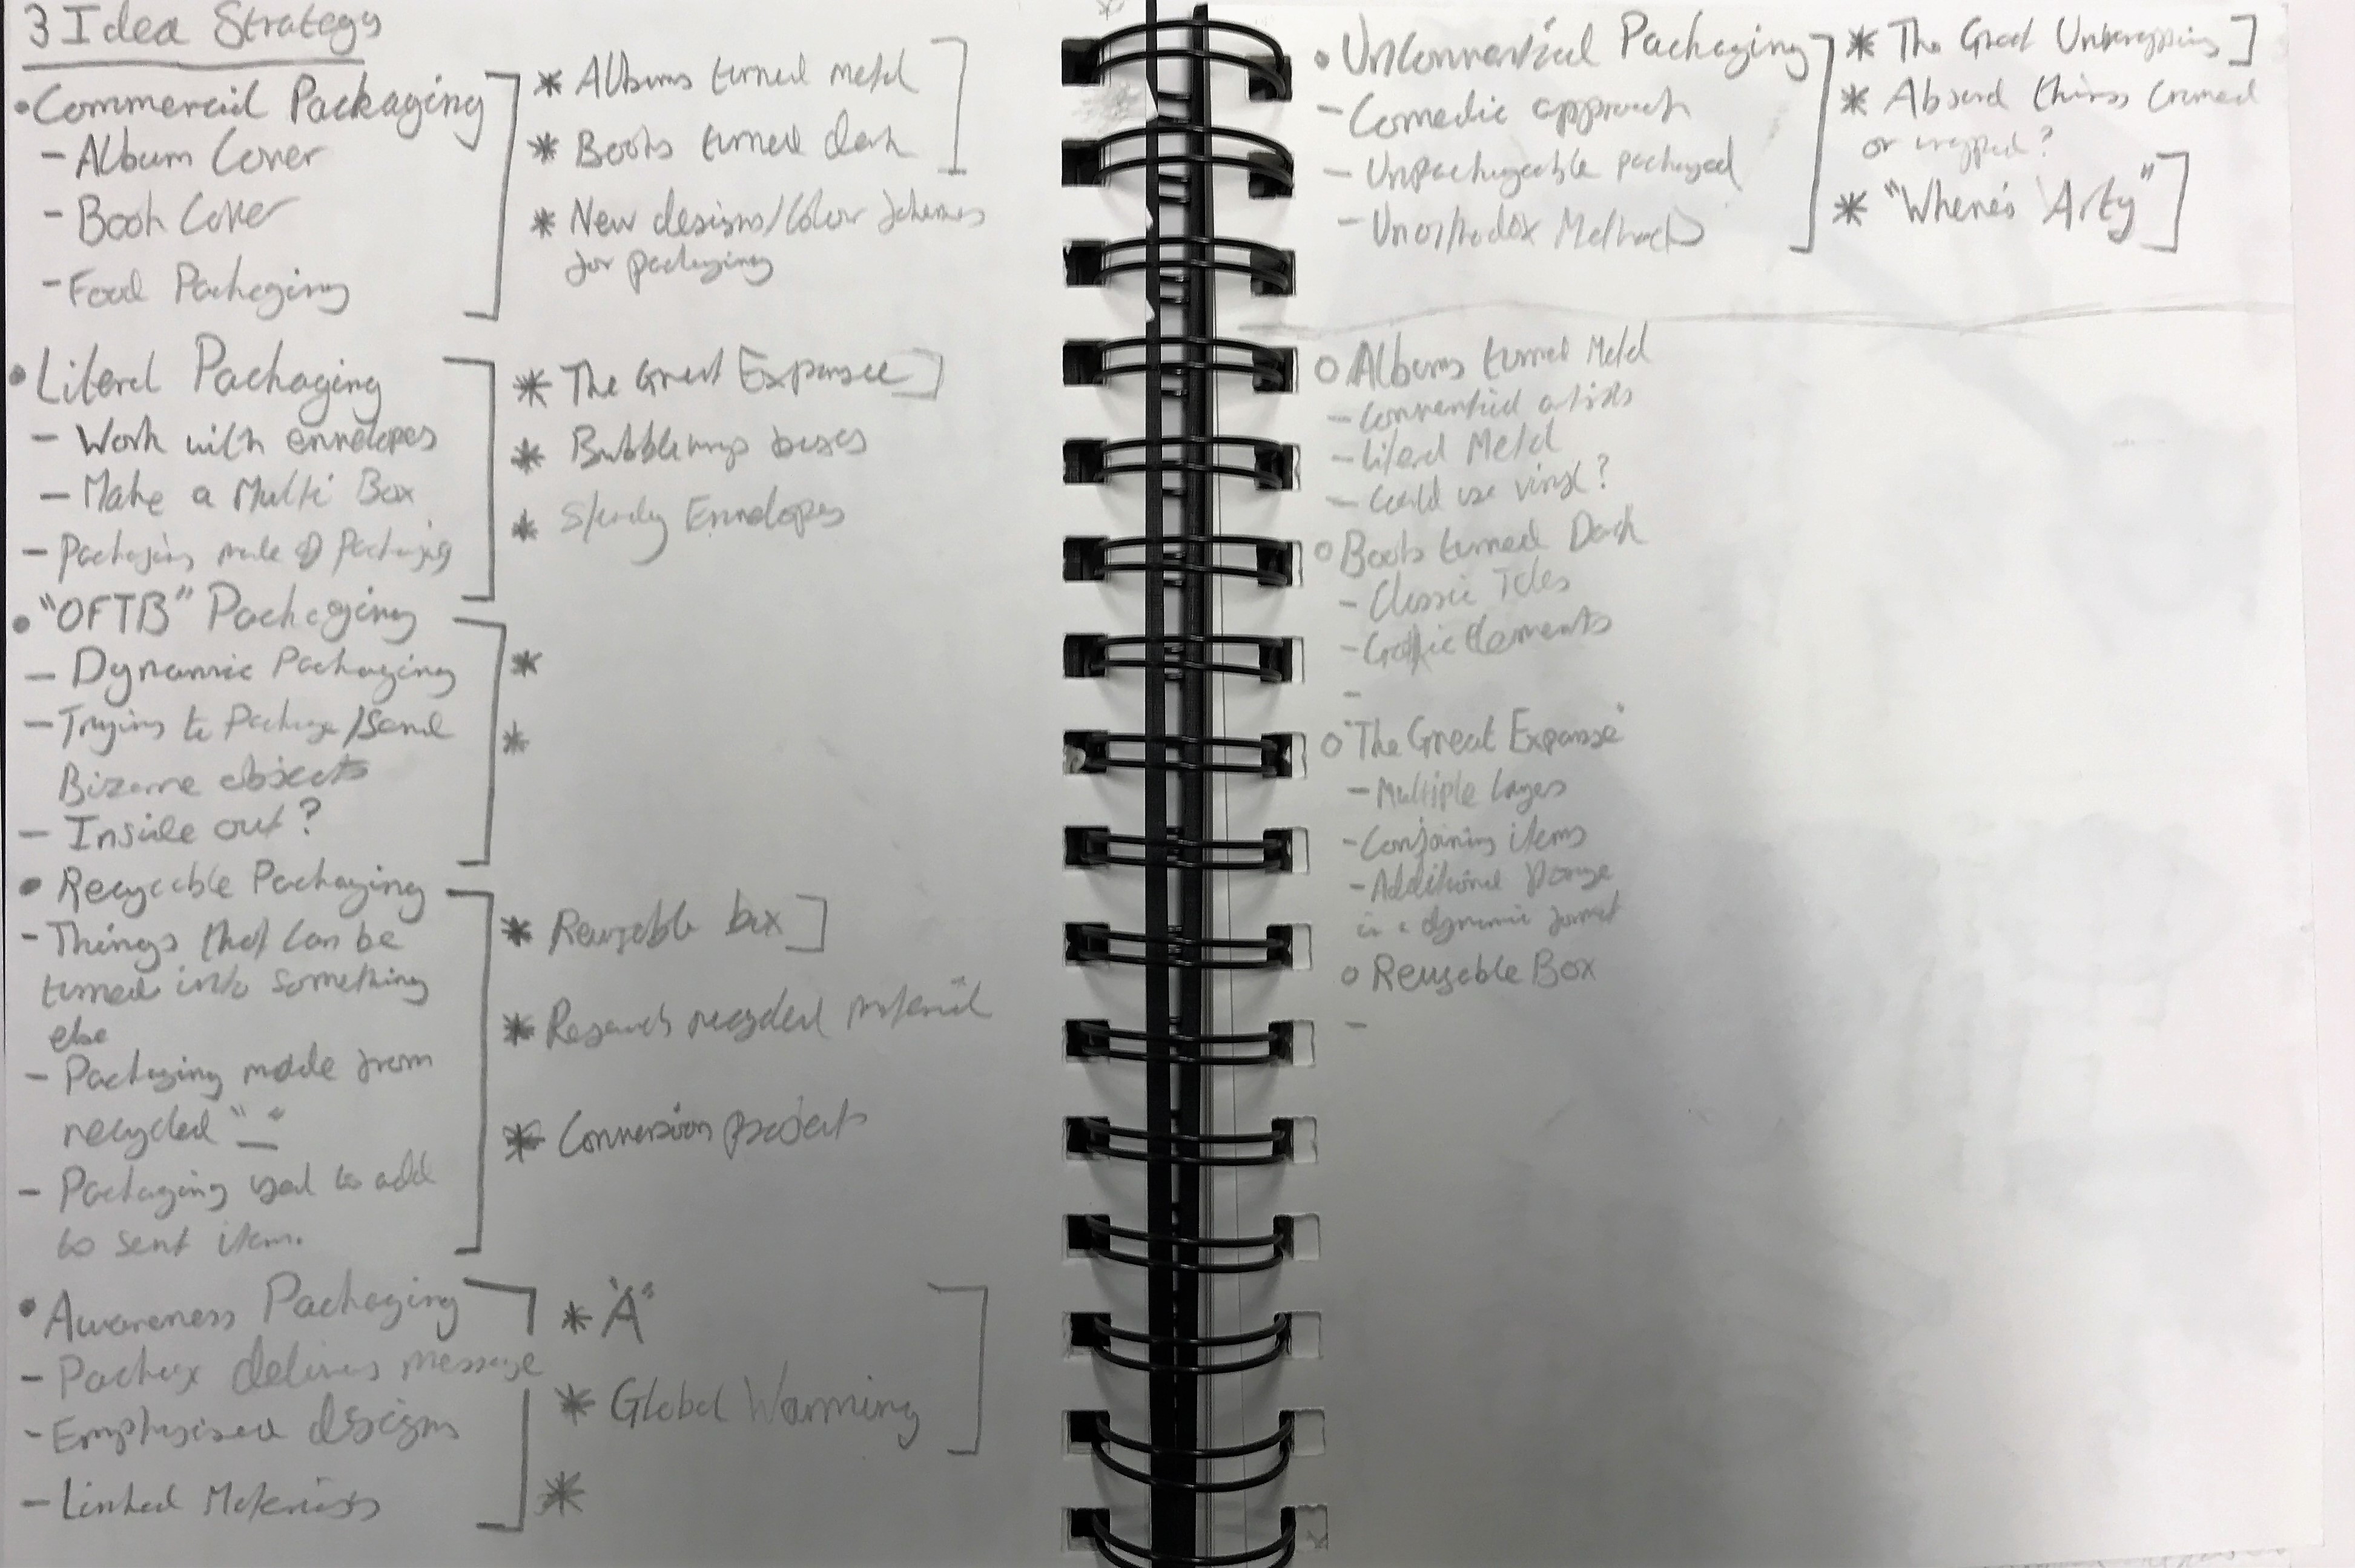 3 Idea Strategy
• Commercial Packaging
- Album Cover
- Book Cover
- Food Packaging
* Albums turned metal
* Books turned dark
* New designs/Colour schemes
for packaging
• Literal Packaging
- Work with envelopes
- Make a Multi Box
- Packaging made of Packaging
* The Great Expanse
* Bubblewrap boxes
* Envelopes
• "OFTB" Packaging
- Dynamic Packaging
- Trying to Package/Send
Bizarre objects
- Inside out?
*
*
• Recyclable Packaging
- Things that can be
turned into something
else
- Packaging made from
recycled "_"
- Packaging used to add
to sent item.
* Reusable box
* Research recycled material
* Conversion projects
• Awareness Packaging
- Package delivers message
- Emphasised designs
- Linked Materials
* "A"
* Global Warming
*
• Packaging
- Comedic approach
- Unpackageable packaged
- Unorthodox Methods
* The Great Unwrapping
* Absurd things
or wrapped?
* "Where's 'Arty"
○ Albums turned Metal
- artists
- Literal Metal
- Could use vinyl?
○ Books turned Dark
- Classic Tales
- Elements
-
○ "The Great Expanse"
- Multiple Layers
- Conjoining items
- Additional storage
in a dynamic format
○ Reusable Box
-